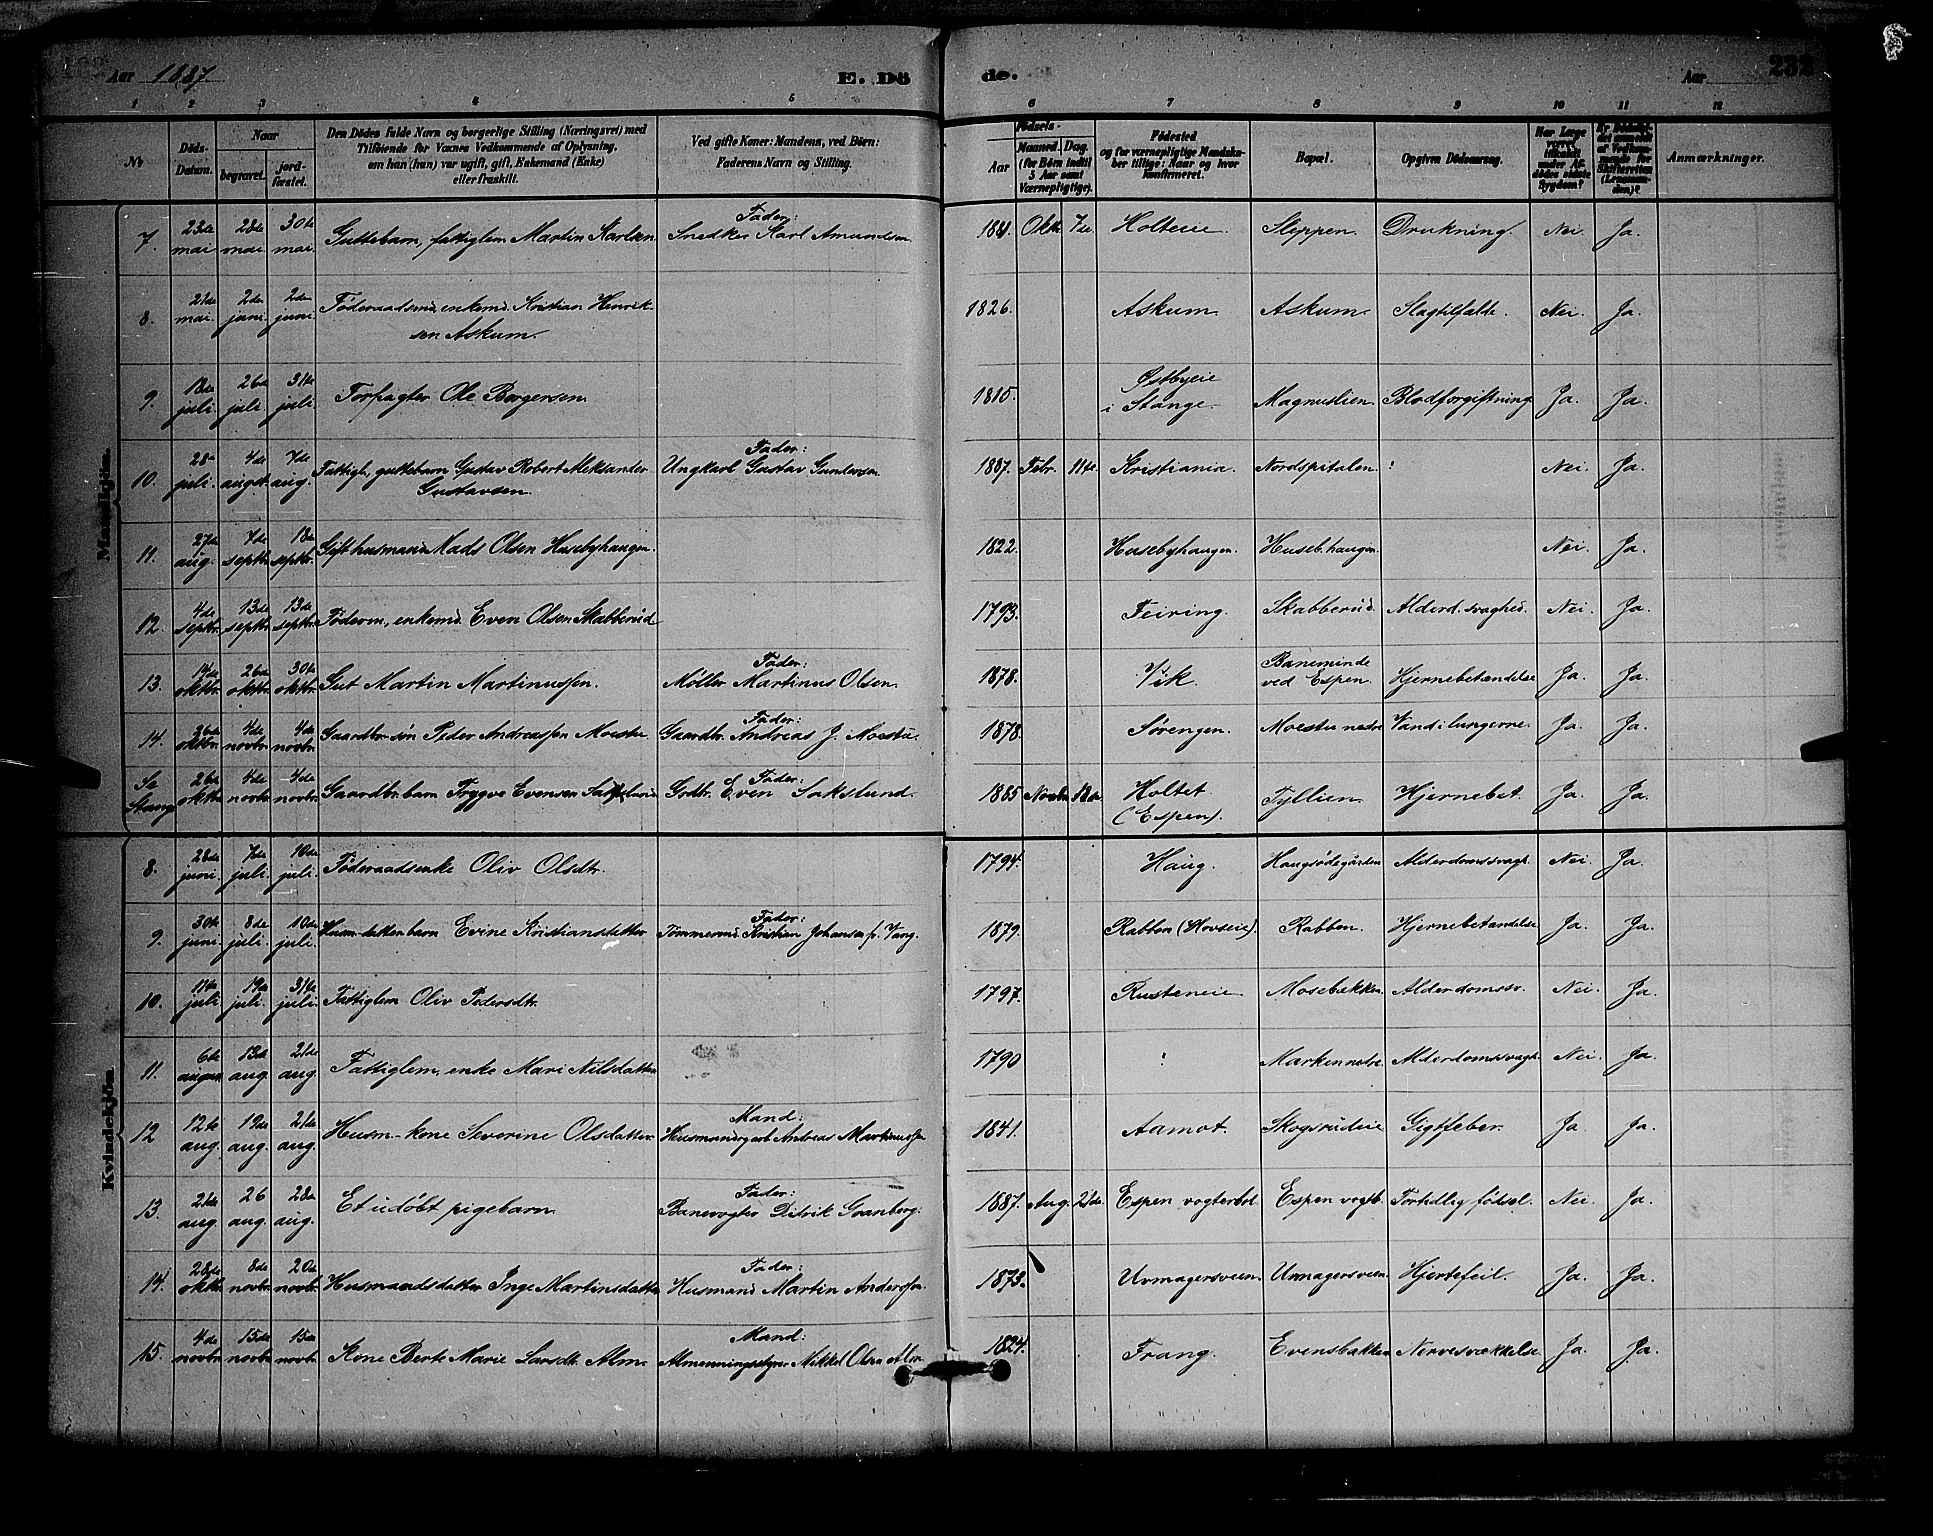 Aar 1887. E. Dö
de. Aar 232
1 2 3 4 5 6 7 8 9 10 11 12
No
Döds-Datum.
Naar
begravet.
jord-fæstet.
Den Dödes fulde Navn og borgerlige Stilling (Næringsvei) med
Tilföiende for Voxnes Vedkommende af Oplysning,
om han (hun) var ugift, gift, Enkemand (Enke)
eller fraskilt.
Ved gifte Koner: Mandens, ved Börn:
Faderens Navn og Stilling.
Födsels-
Aar
Maaned. Dag.
(for Börn indtil
5 Aar samt
Værnepligtige).
Födested
og for værnepligtige Mandska-
ber tillige: Naar og hvor
konfirmeret.
Bopæl.
Opgiven Dödsaarsag.
Har Læge
været
tilkaldt
under Af-
dödes sidste
Sygdom?
Er Dödsfal-
det anmeldt
af Vedkom-
mende for
Skifteretten
(Lensman-
den)?
Anmærkninger.
Mandkjön.
7. 23de mai 28de mai 30te mai. Guttebarn, fattiglem Martin Karlsen Fader: Snedker Karl Amundsen 1881. Oktr 7de Holteie Sleppen. Drukning. Nei Ja.
8. 21de mai. 2den juni. 2den juni. Föderaadsmd, enkemd. Kristian Henrik-
sen Askum. 1826. Askum Askum Slagtilfælde. Nei. Ja.
9. 13de juli 26de juli 31te juli. Forpagter Ole Borgersen 1815. Østbyeie
i Stange. Magnuslien. Blodforgiftning Ja. Ja.
10. 28de juli. 4de augt. 7de aug. Fattigl. guttebarn Gustav Robert Aleksander
Gustavsen. Fader: Ungkarl Gustav Gundersen 1887. Febr. 11te. Kristiania. Nordspitalen. : Nei. Ja.
11. 27de aug. 4de septbr 18de septbr. Gift husmand Mads Olsen Husebyhaugen. 1822. Husebyhaugen. Huseb.haugen. Nei. Ja.
12. 4de septbr. 13de septbr 13de septbr Föderm., enkemd. Even Olsen Skabberud 1793. Feiring. Skabberud. Alderd.svaghed. Nei. Ja.
13. 14de oktbr. 26de oktbr. 30te oktbr. Gut Martin Martinussen. Fader: Møller Martinus Olsen. 1878. Vik. Baneminde
ved Espen. Hjernebetændelse Ja. Ja.
14. 26de oktbr. 4de novbr. 4de novbr. Gaardbr.søn Peder Andreassen Moestu. Fader: Gaardbr. Andreas J. Moestu. 1878. Sørengen. Moestu nedre Vand i lungerne Ja. Ja.
Se Stange 26de oktbr. 4de novbr. 4de novbr. Gaardbr.barn Trygve Evensen Sakslund Fader: Grdbr. Even Sakslund. 1885 Novbr. 18de Holtet
(Espen). Fyllien. Hjernebet. Ja. Ja.
Kvindekjön.
8. 28de juni. 7de juli. 10de juli. Föderaadsenke Oliv Olsdtr. 1794. Haug. Haugsødegården Alderdomssvagh. Nei. Ja.
9. 30te juni 8de juli. 10de juli. Husm.datterbarn Evine Kristiansdatter Fader: Tømmermd. Kristian Johansen fr. Vang. 1879. Rabben (Hovseie). Rabben. Hjernebetændelse Ja. Ja.
10. 11te juli 19de juli. 31te juli. Fattiglem Oliv Pedersdtr. 1797. Rusteneie Mosebækken. Alderdomssv. Nei. Ja.
11. 6te august 13de aug. 21de aug. Fattiglem, enke Mari Nilsdatter 1790 : Marken nedre. Alderdomssvagh. Nei. Ja.
12 12te aug. 19de aug. 21de aug. Husm.-kone Severine Olsdatter Mand: Husmand Andreas Martinussen 1841. Aamot. Skogsrudeie Gigtfeber. Ja. Ja.
13. 21de aug. 26 aug. 28de aug. Et udöbt pigebarn. Fader: Banevogter Didrik Granberg. 1887. Aug. 21de. Espen vogterbol. Espen vogtb. Fortidlig fødsel. Nei. Ja.
14. 28de oktbr. 8de novbr. 20de novbr. Husmandsdatter Inge Martinsdatter Fader: Husmand Martin Anderssen. 1873. Urmagersveen. Urmagersveen. Hjertefeil. Ja. Ja.
15. 4de novbr. 15de novbr. 15de novbr. Kone Berte Marie Larsdtr. Alm. Mand: Almenningsstyrer Mikkel Olsen Alm. 1824. Frang. Evensbakken Nervesvækkelse Ja. Ja.